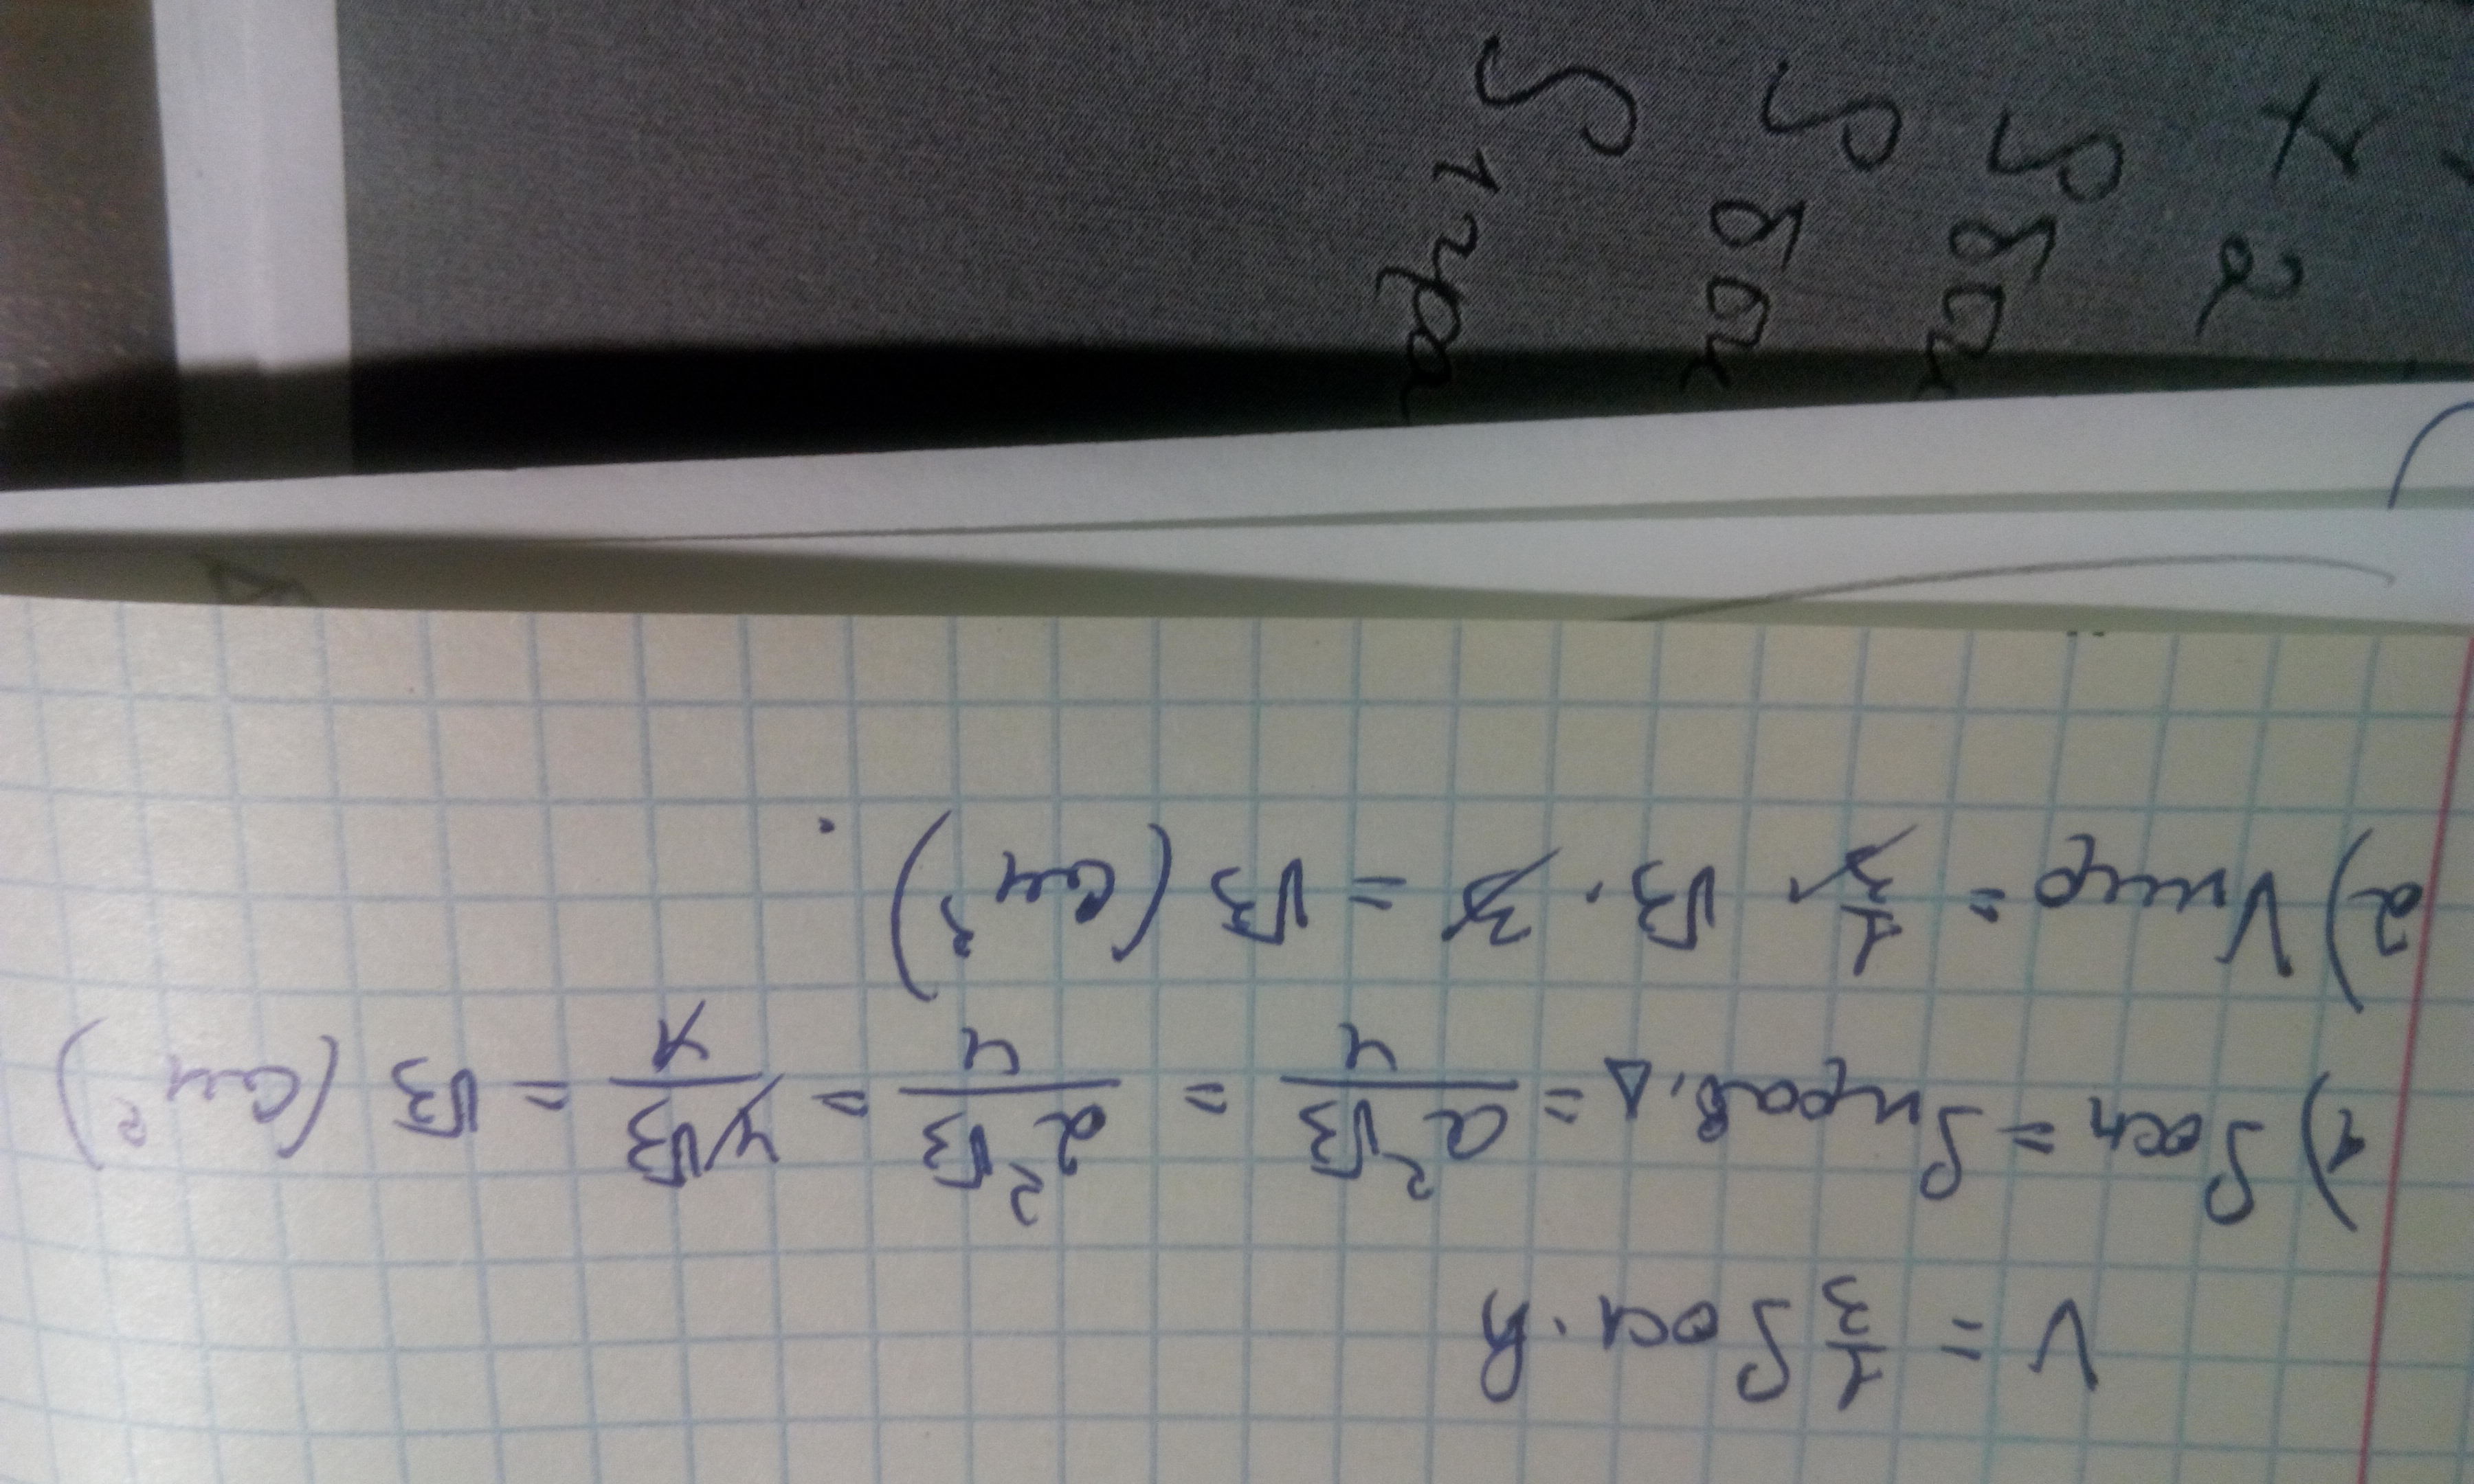 V = 1/3 Sосн · h
1) Sосн = Sправ. Δ = a²√3/4 = 2²√3/4 = 4√3/4 = √3 (см²)
2) Vпир = 1/3 · √3 · 3 = √3 (см³).
S бок
S бок
S 1 гра